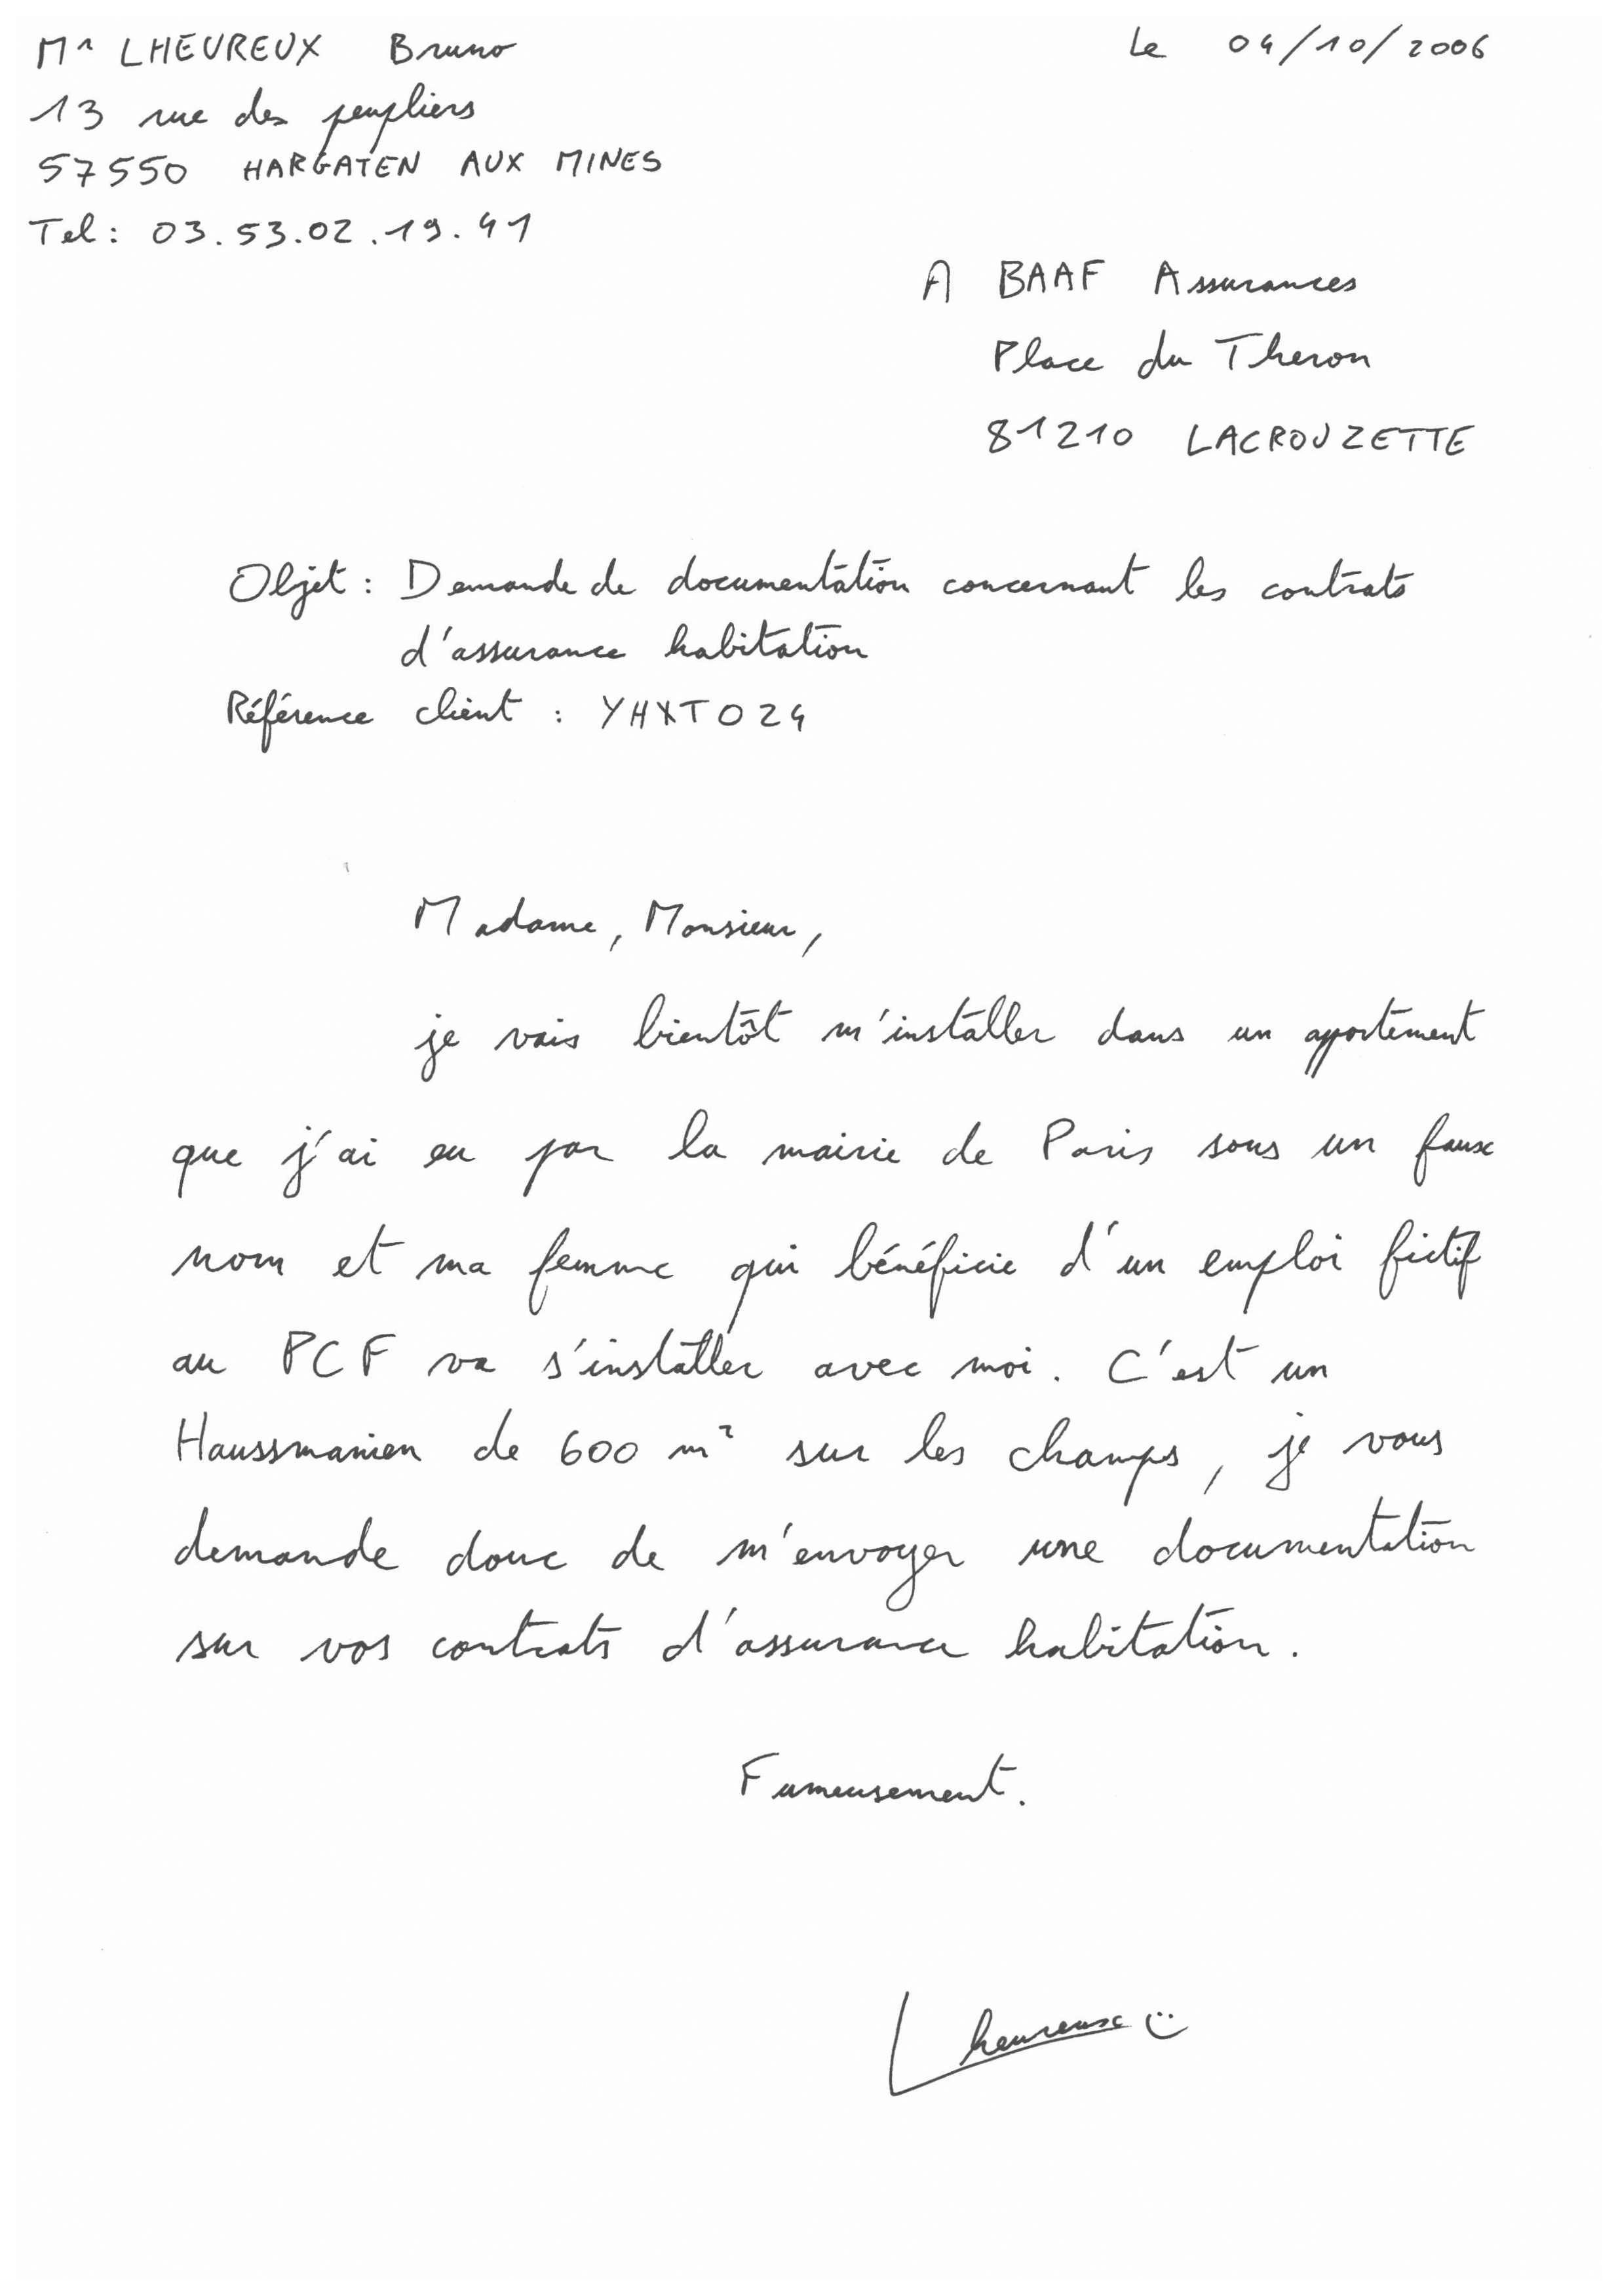 Mr LHEUREUX Bruno
Le 04/10/2006
13 rue des peupliers
57550 HARGATEN AUX MINES
Tel : 03.53.02.19.41
A BAAF Assurances
Place du Theron
81210 LACROUZETTE
Objet : Demande de documentation concernant les contrats
d'assurance habitation
Référence client : YHXTO24
Madame, Monsieur,
je vais bientôt m'installer dans un appartement
que j'ai eu par la mairie de Paris sous un faux
nom et ma femme qui bénéficie d'un emploi fictif
au PCF va s'installer avec moi. C'est un
Haussmanien de 600 m² sur les champs, je vous
demande donc de m'envoyer une documentation
sur vos contrats d'assurance habitation.
Fumeusement.
Lheureux